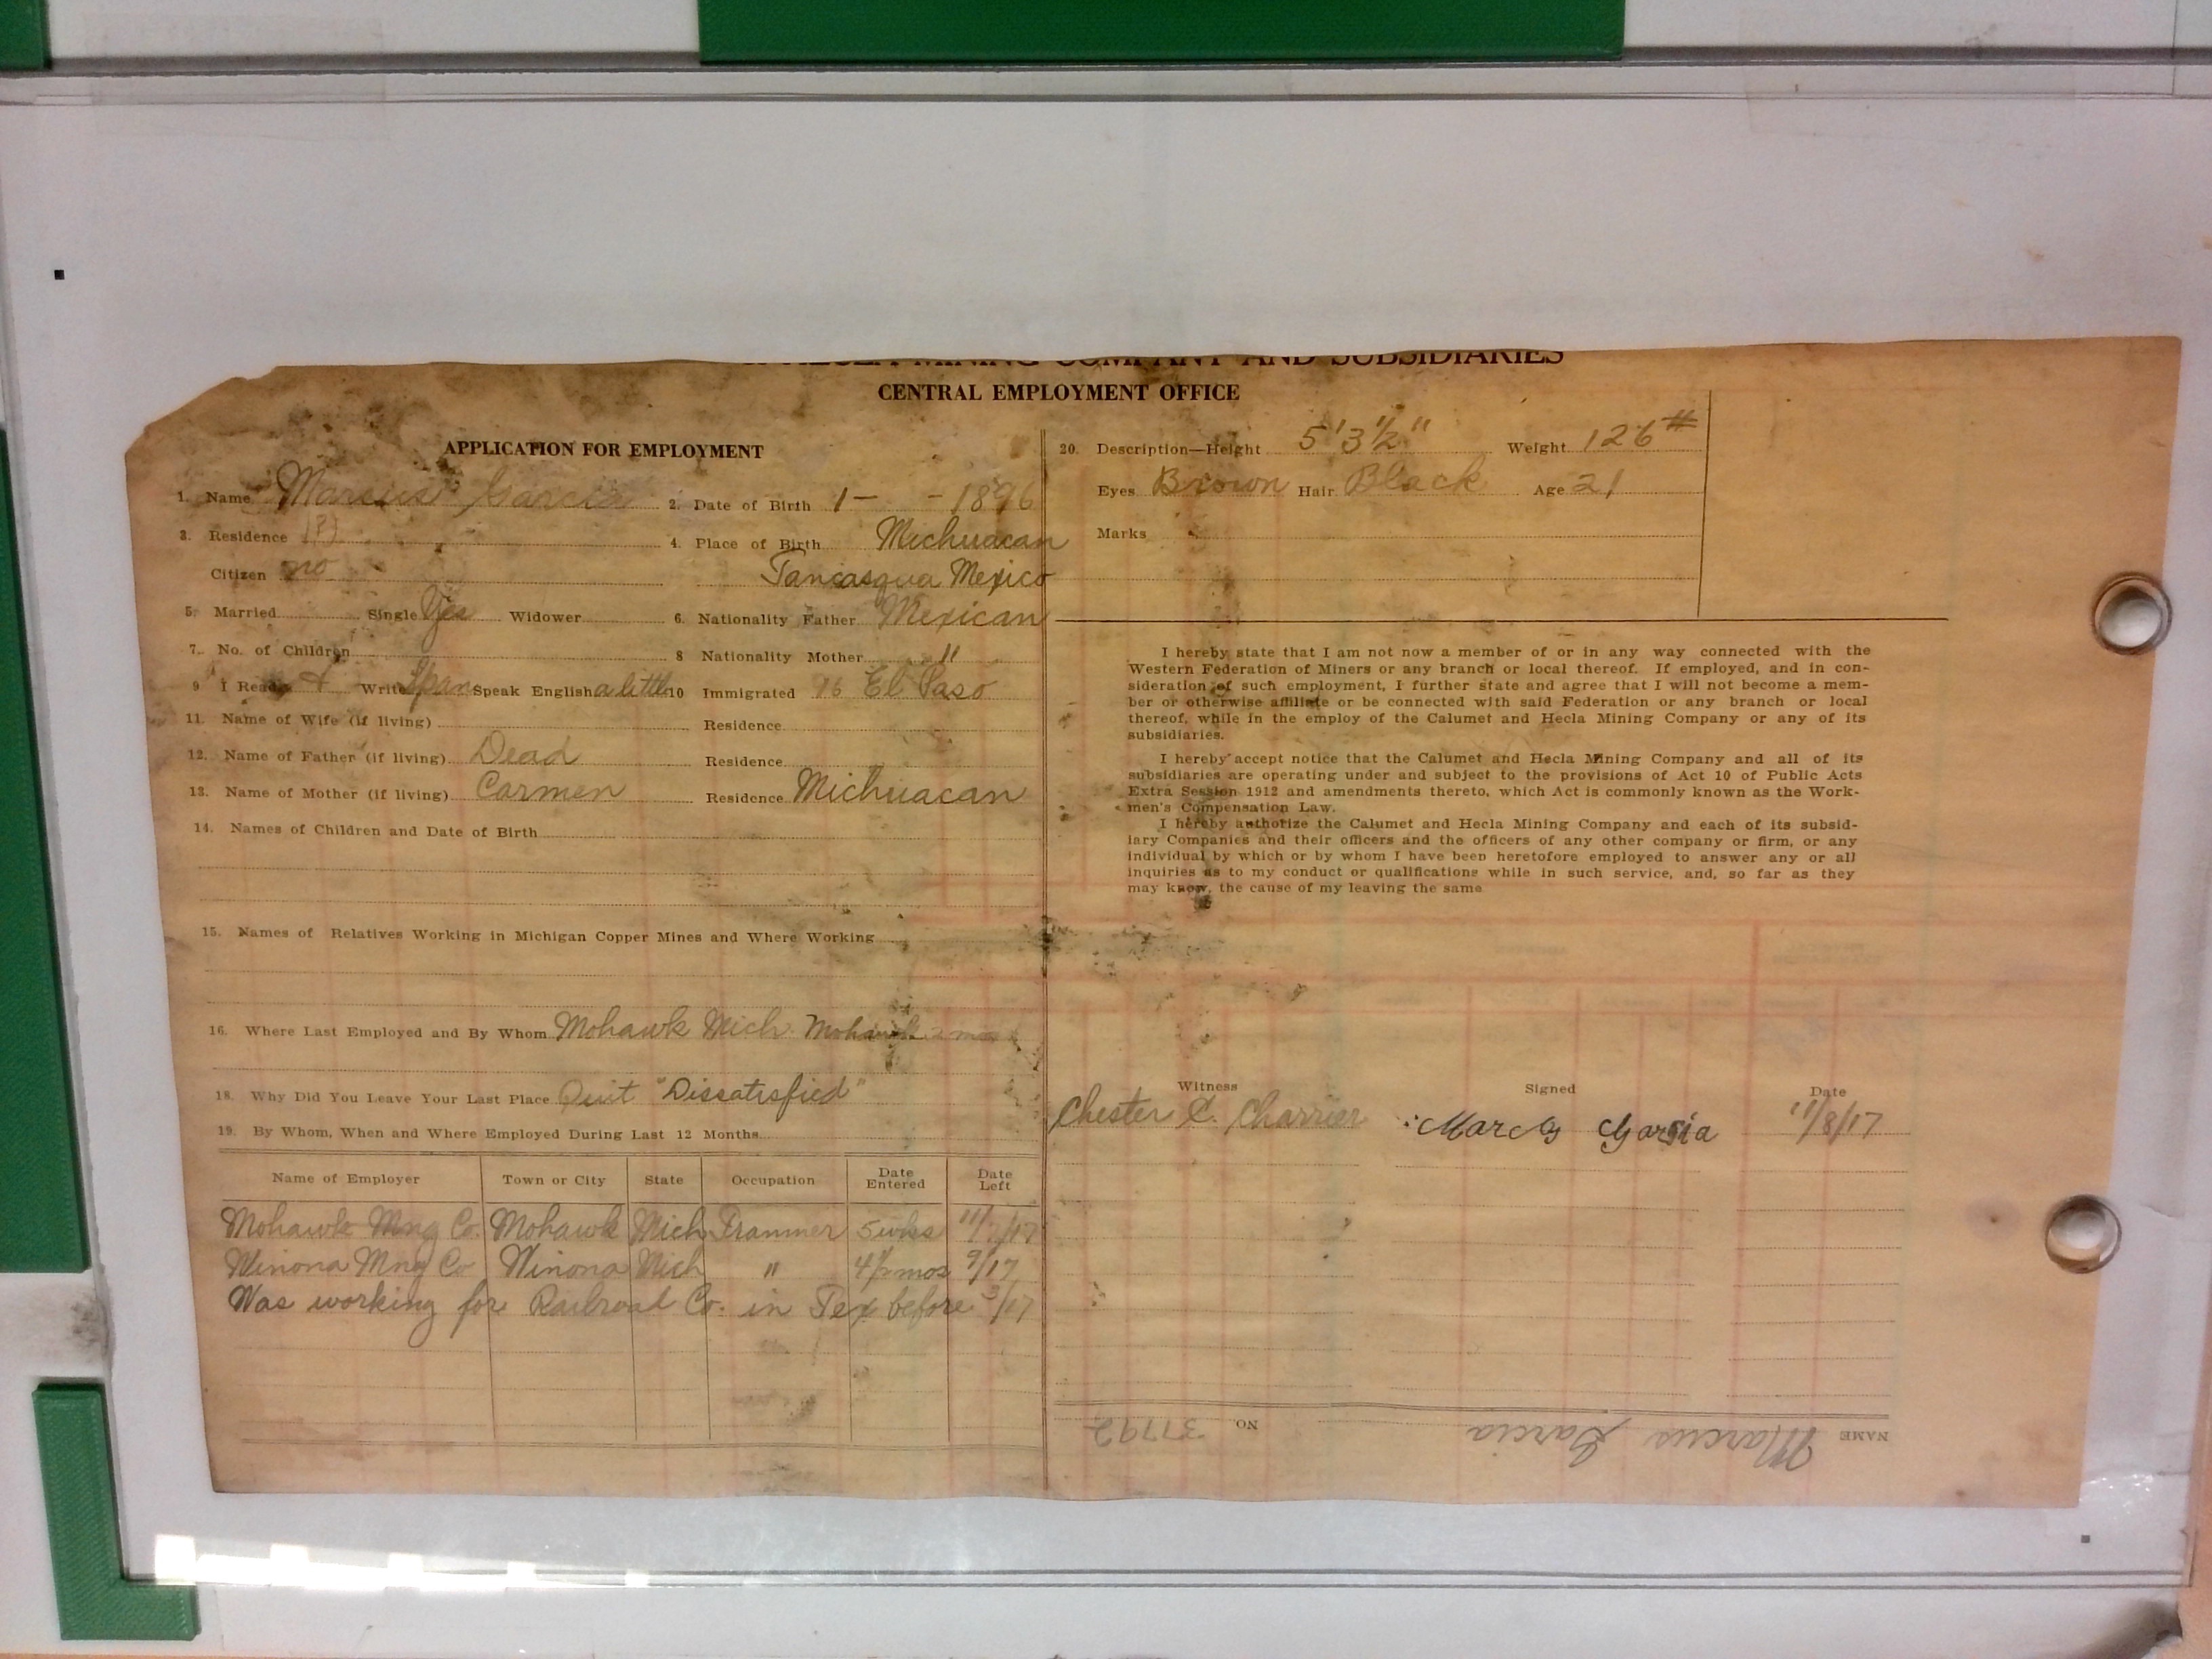 HECLA MINING COMPANY AND SUBSIDIARIES
CENTRAL EMPLOYMENT OFFICE
APPLICATION FOR EMPLOYMENT
1. Name Marcus Garcia 2. Date of Birth 1 - - 1896
3. Residence 4. Place of Birth Michuacan
Citizen no Tancasqua Mexico
5. Married Single Yes Widower 6. Nationality Father Mexican
7. No. of Children 8 Nationality Mother "
9 I Read & Write Span Speak English a little 10 Immigrated 16 El Paso
11. Name of Wife (if living) Residence
12. Name of Father (if living) Dead Residence
13. Name of Mother (if living) Carmen Residence Michuacan
14. Names of Children and Date of Birth
15. Names of Relatives Working in Michigan Copper Mines and Where Working
16. Where Last Employed and By Whom Mohawk Mich. Mohawk
18. Why Did You Leave Your Last Place Quit "Dissatisfied"
19. By Whom, When and Where Employed During Last 12 Months
Name of Employer Town or City State Occupation Date Entered Date Left
Mohawk Mng Co. Mohawk Mich Trammer 5 wks 11/7/17
Winona Mng Co Winona Mich " 4½ mos 9/17
Was working for Railroad Co. in Tex before 3/17
20. Description—Height 5'3½" Weight 126#
Eyes Brown Hair Black Age 21
Marks
I hereby state that I am not now a member of or in any way connected with the
Western Federation of Miners or any branch or local thereof. If employed, and in con-
sideration of such employment, I further state and agree that I will not become a mem-
ber or otherwise affiliate or be connected with said Federation or any branch or local
thereof, while in the employ of the Calumet and Hecla Mining Company or any of its
subsidiaries.
I hereby accept notice that the Calumet and Hecla Mining Company and all of its
subsidiaries are operating under and subject to the provisions of Act 10 of Public Acts
Extra Session 1912 and amendments thereto, which Act is commonly known as the Work-
men's Compensation Law.
I hereby authorize the Calumet and Hecla Mining Company and each of its subsid-
iary Companies and their officers and the officers of any other company or firm, or any
individual by which or by whom I have been heretofore employed to answer any or all
inquiries as to my conduct or qualifications while in such service, and, so far as they
may know, the cause of my leaving the same
Witness Signed Date
Chester C. Charrier Marcos Garsia 11/8/17
NAME Marcus Garcia NO 31792